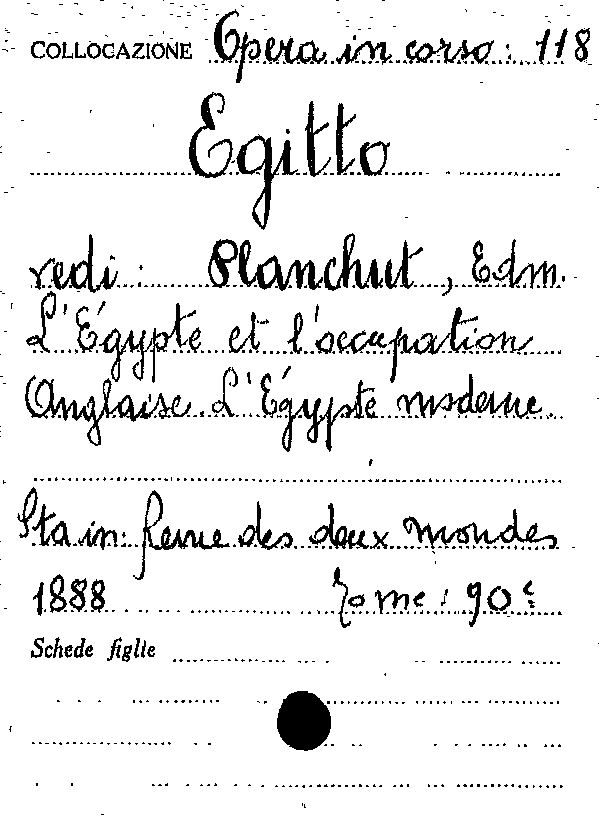 COLLOCAZIONE Opera in corso: 118
Egitto
vedi: Planchut, Edm.
L'Égypte et l'occupation
Anglaise. L'Égypte moderne.
Sta in: Revue des deux mondes
1888 Tome: 90e
Schede figlie